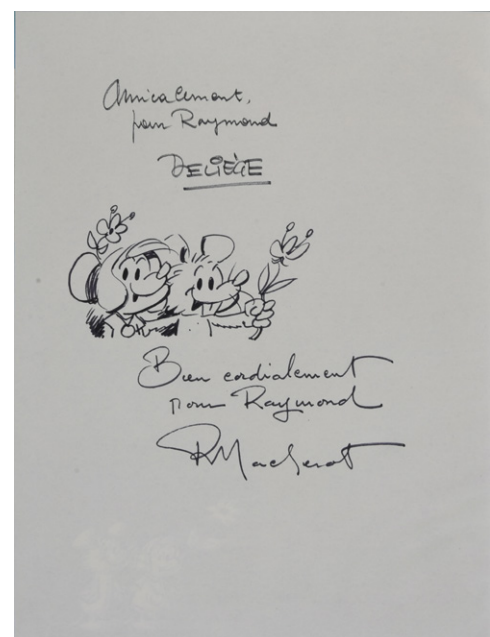 Amicalement,
pour Raymond
DELIÈGE
Bien cordialement
pour Raymond
RMacherot